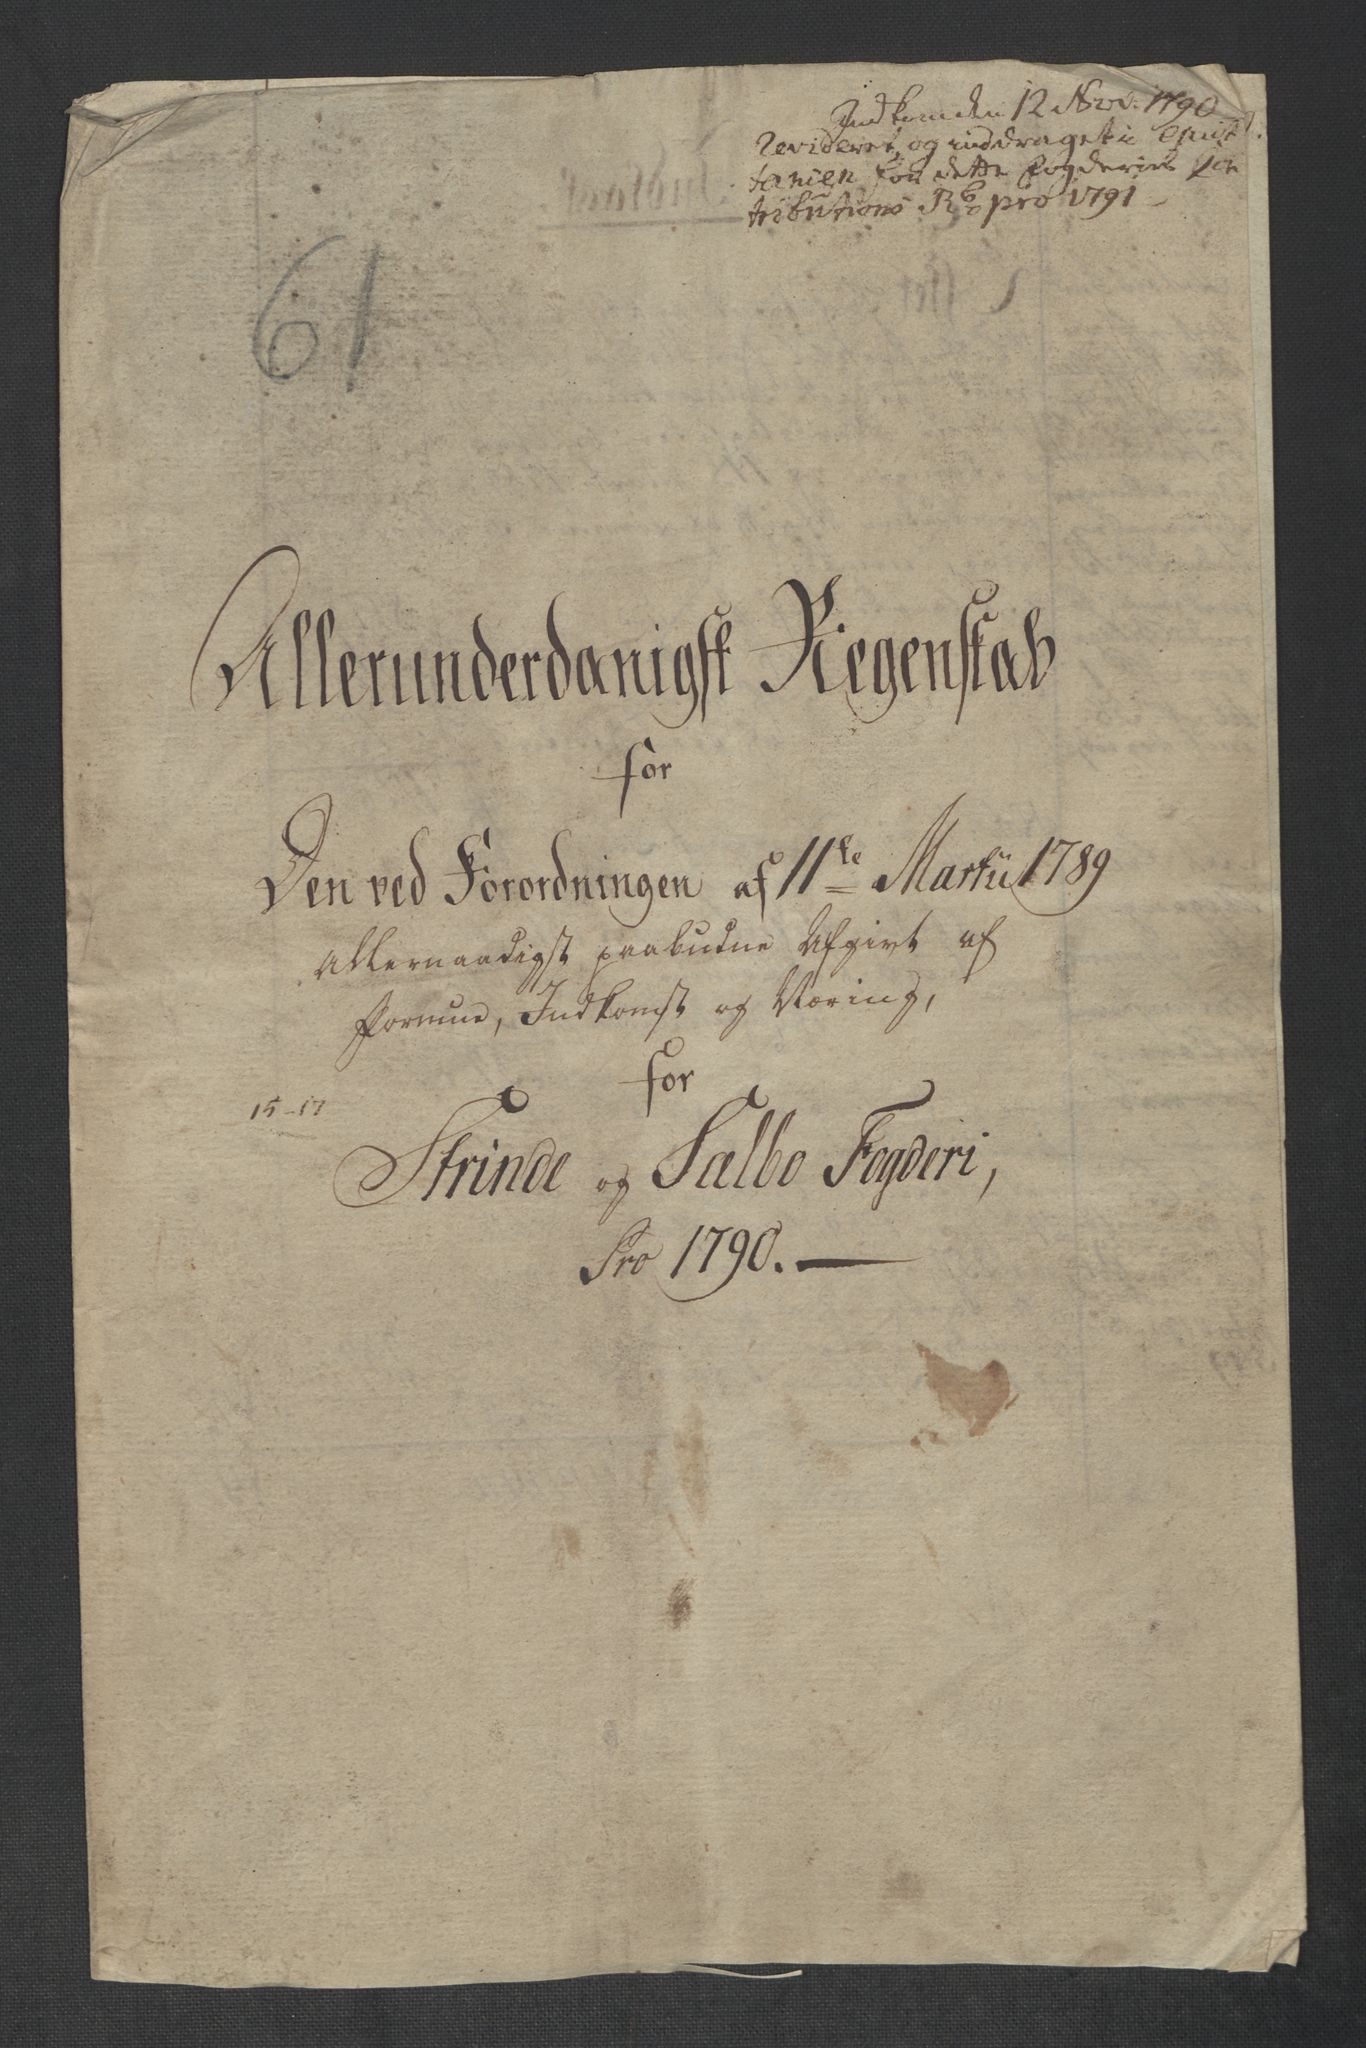 Indkom den 12 Nov: 1790
Revideret, og inddraget i Qvit
tancen for dette Fogderies Con
tributions R pro 1791
61
Allerunderdanigst Regenskab
for
Den ved Forordningen af 11te Martii 1789
Allernaadigst paabudne Afgivt af
Formue, Indkomst og Næring,
for
15-17
Strinde og Sælbo Fogderi,
Pro 1790.